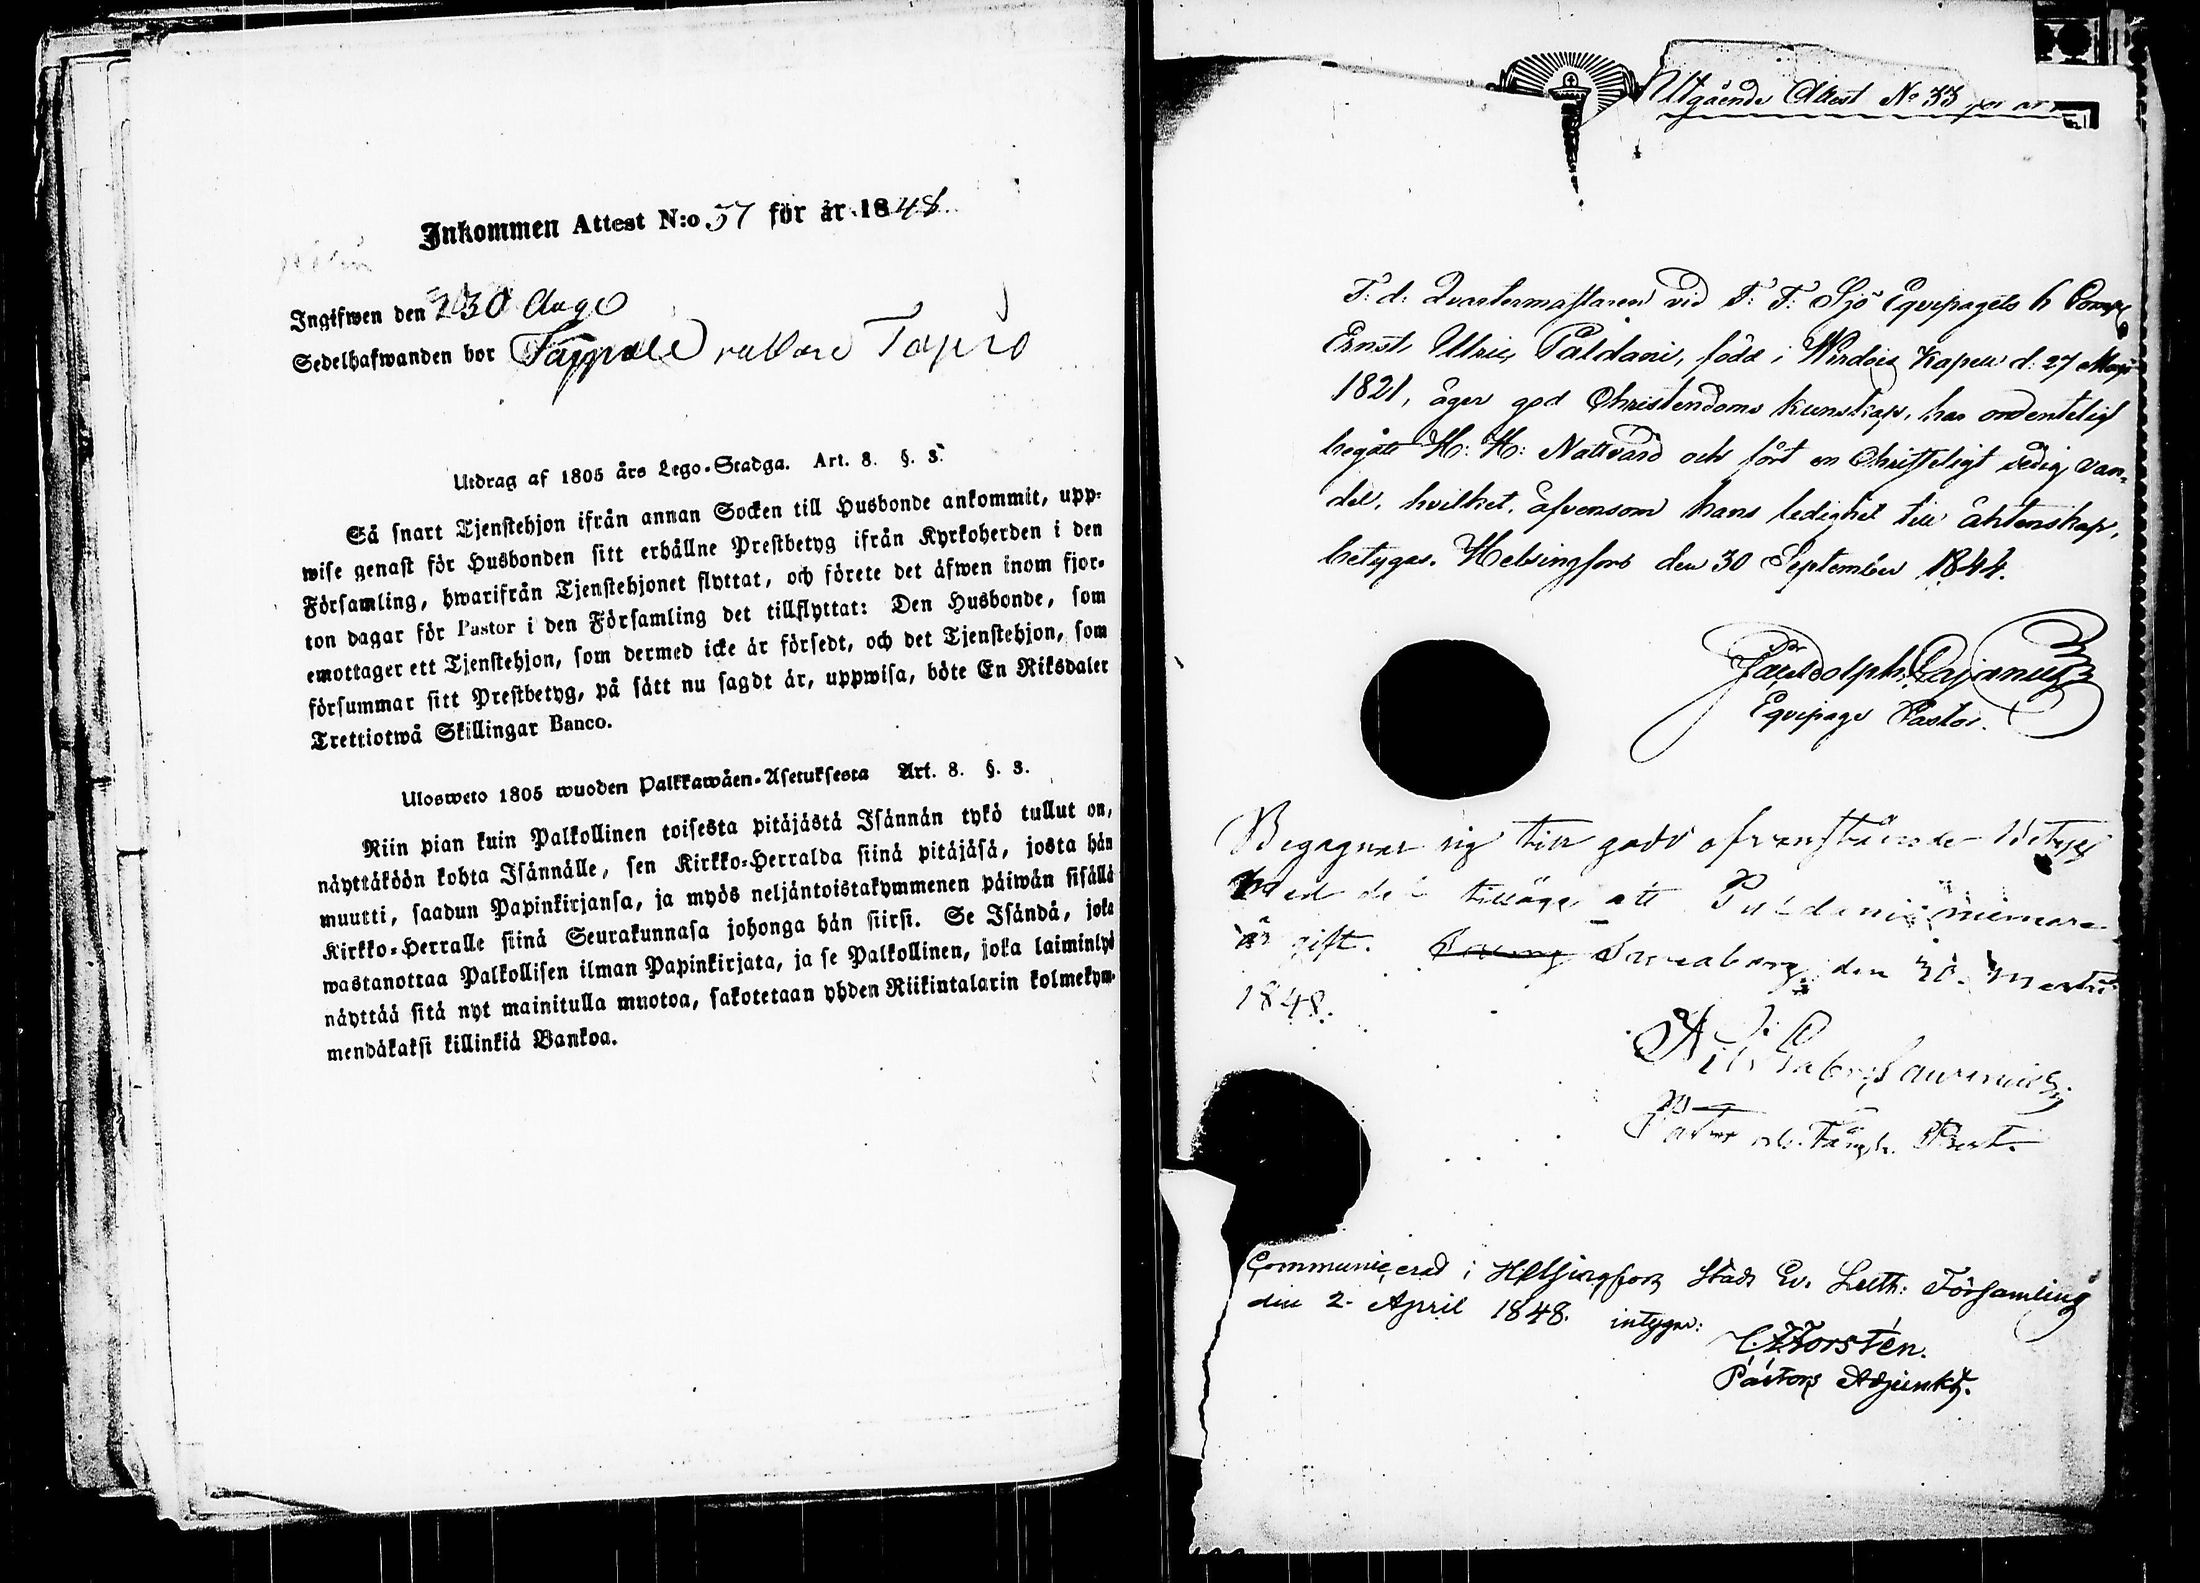 Inkommen Attest N:o 57 för år 1848
Ingifwen den 30 Aug
Sedelhafwanden bor
Utdrag af 1805 års Lego-Stadga. Art. 8. §. 3.
Så snart Tjenstehjon ifrån annan Socken till Husbonde ankommit, upp-
wise genast för Husbonden sitt erhållne Prestbetyg ifrån Kyrkoherden i den
Församling, hwarifrån Tjenstehjonet flyttat, och förete det äfwen inom fjor-
ton dagar för Pastor i den Församling det tillflyttat: Den Husbonde, som
emottager ett Tjenstehjon, som dermed icke är försedt, och det Tjenstehjon, som
försummar sitt Prestbetyg, på sätt nu sagdt är, uppwisa, böte En Riksdaler
Trettiotwå Skillingar Banco.
Ulosweto 1805 wuoden Palkkawäen-Asetuksesta Art. 8. §. 3.
Niin pian kuin Palkollinen toisesta pitäjästä Isännän tykö tullut on,
näyttäköön kohta Isännälle, sen Kirkko-Herralda siinä pitäjäsä, josta hän
muutti, saadun Papinkirjansa, ja myös neljäntoistakymmenen päiwän sisällä
Kirkko-Herralle siinä Seurakunnasa johonga hän siirsi. Se Isändä, joka
wastanottaa Palkollisen ilman Papinkirjata, ja se Palkollinen, joka laiminlyö
näyttää sitä nyt mainitulla muotoa, sakotetaan yhden Riikintalarin kolmekym-
mendäkaksi killinkiä Bankoa.
Utgående Attest No 33 för år
F: d: Qvartermästaren vid F: F: Sjö Equipagets 6 Comp
Ernst Ulric Paldani, född i Wirdois Kapell d: 27 Maji
1821, äger god Christendoms kunskap, har ordenteligt
begått H: H: Nattvard och fört en Christeligt sedig van-
del, hvilket, äfvensom hans ledighet till äktenskap,
betygas. Helsingfors den 30 September 1844.
Jac. Adolph Cajanus
Equipage Pastor.
Begagnar sig till godo ofvanstående Betyg
Med det tillägg att Paldani nimera
är gift. Sveaborg den 30 Martii
1848.
Pastor och Fängh. Prest.
Communicerad i Helsingfors Stads Ev. Luth: Församling
den 2. April 1848. intygar:
Forstén.
Pastors Adjunkt.